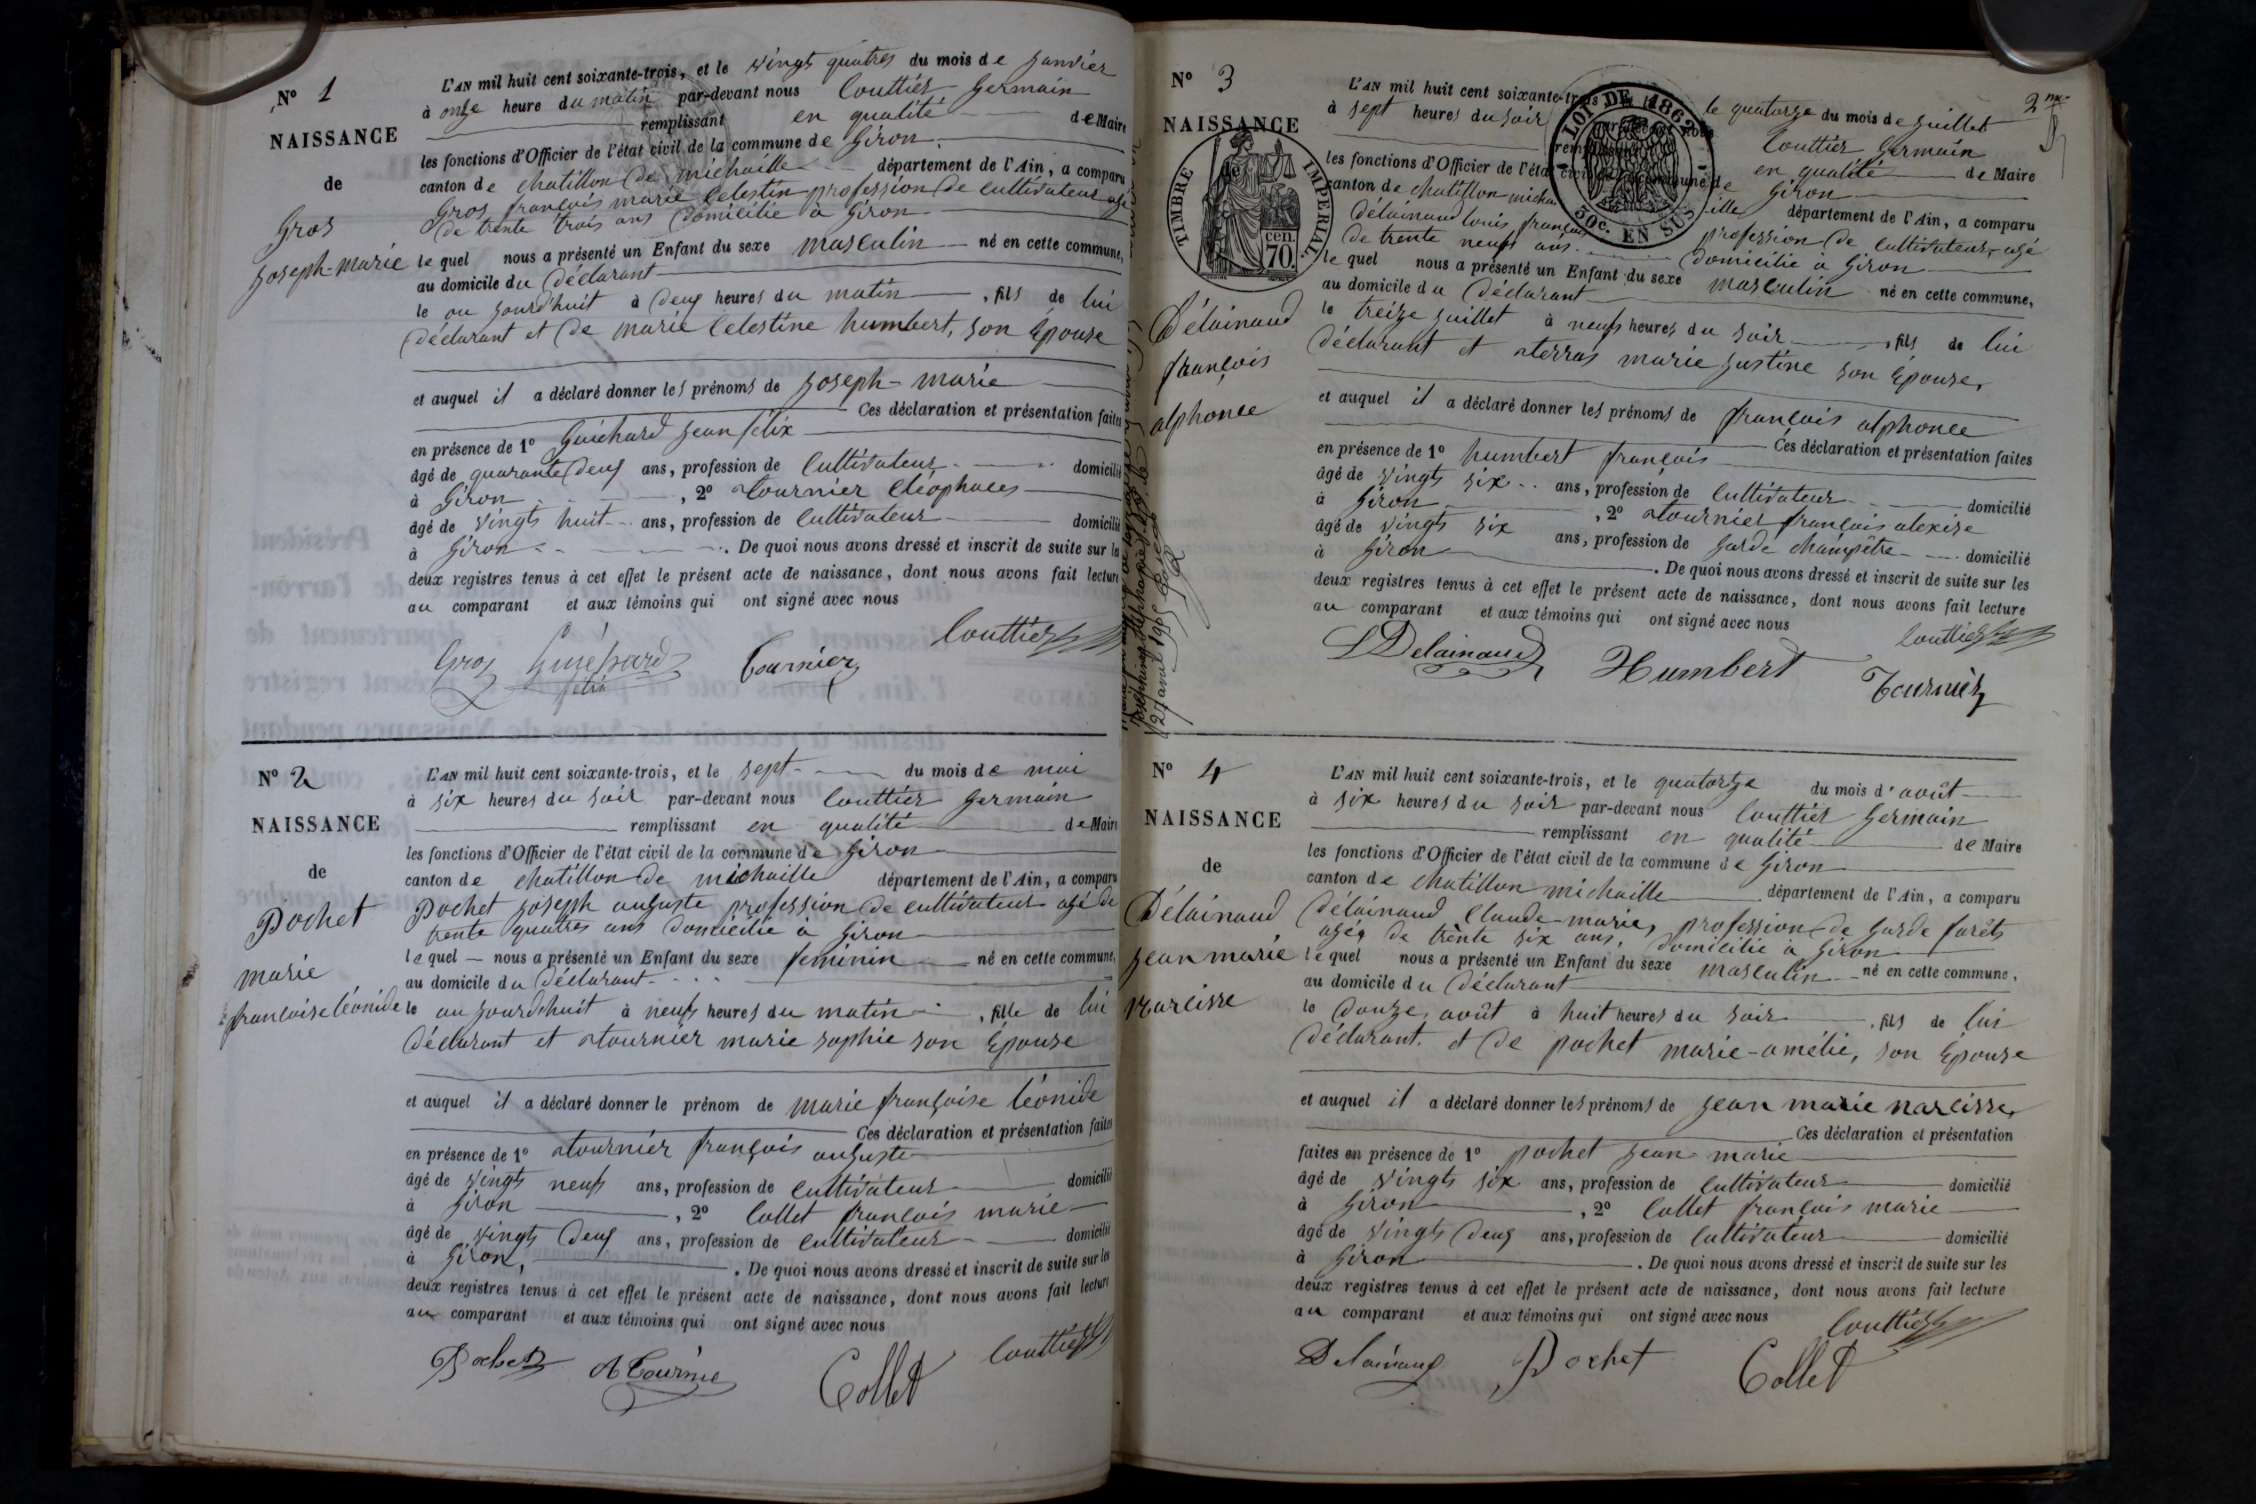 N° 1
NAISSANCE
de
Gros
joseph-marie
L'AN mil huit cent soixante-trois, et le vingt quatres du mois de janvier
à onze heure du matin par-devant nous Couttier Germain
remplissant en qualité de Maire
les fonctions d'Officier de l'état civil de la commune de Giron
canton de chatillon de michaille département de l'Ain, a comparu
Gros françois marie Celestin profession de cultivateur agé
de trente trois ans domicilié à Giron
le quel nous a présenté un Enfant du sexe masculin né en cette commune,
au domicile du déclarant
le au jourd'huit à deux heures du matin, fils de lui
déclarant et de marie Celestine humbert, son épouse
et auquel il a déclaré donner les prénoms de joseph-marie
Ces déclaration et présentation faites
en présence de 1° Guichard jean félix
âgé de quarante deux ans, profession de Cultivateur domicilié
à Giron, 2° tournier Cléophaces
âgé de vingts huit ans, profession de Cultivateur domicilié
à Giron. De quoi nous avons dressé et inscrit de suite sur les
deux registres tenus à cet effet le présent acte de naissance, dont nous avons fait lecture
au comparant et aux témoins qui ont signé avec nous
Couttier
Gros Guichard félix Tournier
N° 2
NAISSANCE
de
Pochet
marie
françoise léonide
L'AN mil huit cent soixante-trois, et le sept du mois de mai
à six heures du soir par-devant nous Couttier Germain
remplissant en qualité de Maire
les fonctions d'Officier de l'état civil de la commune de Giron
canton de chatillon de michaille département de l'Ain, a comparu
Pochet joseph auguste profession de cultivateur agé de
trente quatres ans domicilié à Giron
le quel nous a présenté un Enfant du sexe feminin né en cette commune,
au domicile du déclarant
le au jourd'huit à neufs heures du matin, fille de lui
déclarant et tournier marie sophie son épouse
et auquel il a déclaré donner le prénom de marie françoise léonide
Ces déclaration et présentation faites
en présence de 1° tournier françois auguste
âgé de vingts neufs ans, profession de cultivateur domicilié
à Giron, 2° Collet françois marie
âgé de vingts deux ans, profession de cultivateur domicilié
à Giron. De quoi nous avons dressé et inscrit de suite sur les
deux registres tenus à cet effet le présent acte de naissance, dont nous avons fait lecture
au comparant et aux témoins qui ont signé avec nous
Couttier
Pochet A Tournie Collet
2me
N° 3
NAISSANCE
TIMBRE IMPERIAL
70 cen.
LOI DE 1862
50c. EN SUS
Délainaud
françois
alphonce
27 avril 1905
L'AN mil huit cent soixante-trois le quatorze du mois de juillet
à sept heures du soir Couttier Germain
en qualité de Maire
les fonctions d'Officier de l'état civil de la commune de Giron
canton de chatillon michaille département de l'Ain, a comparu
Délainaud louis françois profession de cultivateur, agé
de trente neufs ans domicilié à Giron
le quel nous a présenté un Enfant du sexe masculin né en cette commune,
au domicile du déclarant
le treize juillet à neufs heures du soir, fils de lui
déclarant et terras marie justine son épouse,
et auquel il a déclaré donner les prénoms de françois alphonce
Ces déclaration et présentation faites
en présence de 1° humbert françois
âgé de vingts six ans, profession de Cultivateur domicilié
à Giron, 2° tournier françois alexise
âgé de vingts six ans, profession de Garde champêtre domicilié
à Giron. De quoi nous avons dressé et inscrit de suite sur les
deux registres tenus à cet effet le présent acte de naissance, dont nous avons fait lecture
au comparant et aux témoins qui ont signé avec nous
Couttier
L Delainaud Humbert Tournier
N° 4
NAISSANCE
de
Délainaud
jean marie
narcisse
L'AN mil huit cent soixante-trois, et le quatorze du mois d'août
à six heures du soir par-devant nous Couttier Germain
remplissant en qualité de Maire
les fonctions d'Officier de l'état civil de la commune de Giron
canton de chatillon michaille département de l'Ain, a comparu
Délainaud Claude-marie, profession de garde farêts
agés de trente six ans, domicilié à Giron
le quel nous a présenté un Enfant du sexe masculin né en cette commune,
au domicile du déclarant
le douze août à huit heures du soir, fils de lui
déclarant et de pochet marie-amélie, son épouse
et auquel il a déclaré donner les prénoms de jean marie narcisse,
Ces déclaration et présentation
faites en présence de 1° pochet jean marie
âgé de vingts six ans, profession de Cultivateur domicilié
à Giron, 2° Collet françois marie
âgé de vingts deux ans, profession de Cultivateur domicilié
à Giron. De quoi nous avons dressé et inscrit de suite sur les
deux registres tenus à cet effet le présent acte de naissance, dont nous avons fait lecture
au comparant et aux témoins qui ont signé avec nous
Couttier
Delainaud Pochet Collet